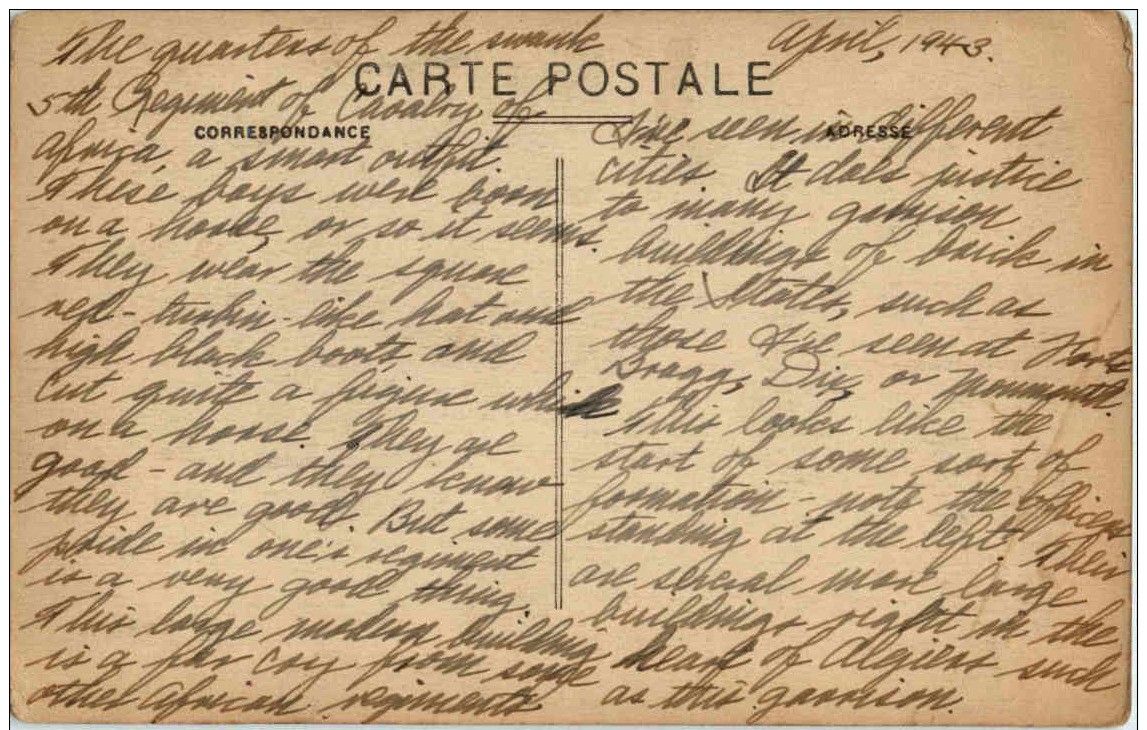 April, 1943.
CARTE POSTALE
CORRESPONDANCE
ADRESSE
The quarters of the swank
5th Regiment of Cavalry of
Africa, a smart outfit.
These boys were born
on a horse, or so it seems.
They wear the square
red-turbin-like hat and
high black boots, and
cut quite a figure while
on a horse. They are
good - and they know
they are good. But some
pride in one's regiment
is a very good thing.
This large modern building
is a far cry from some
other African regiments
I've seen in different
cities. It does justice
to many garrison
buildings of brick in
the States, such as
those I've seen at Forts
Bragg, Dix, or Monmouth.
This looks like the
start of some sort of
formation - note the officers
standing at the left. Their
are several more large
buildings right in the
heart of Algiers such
as this garrison.